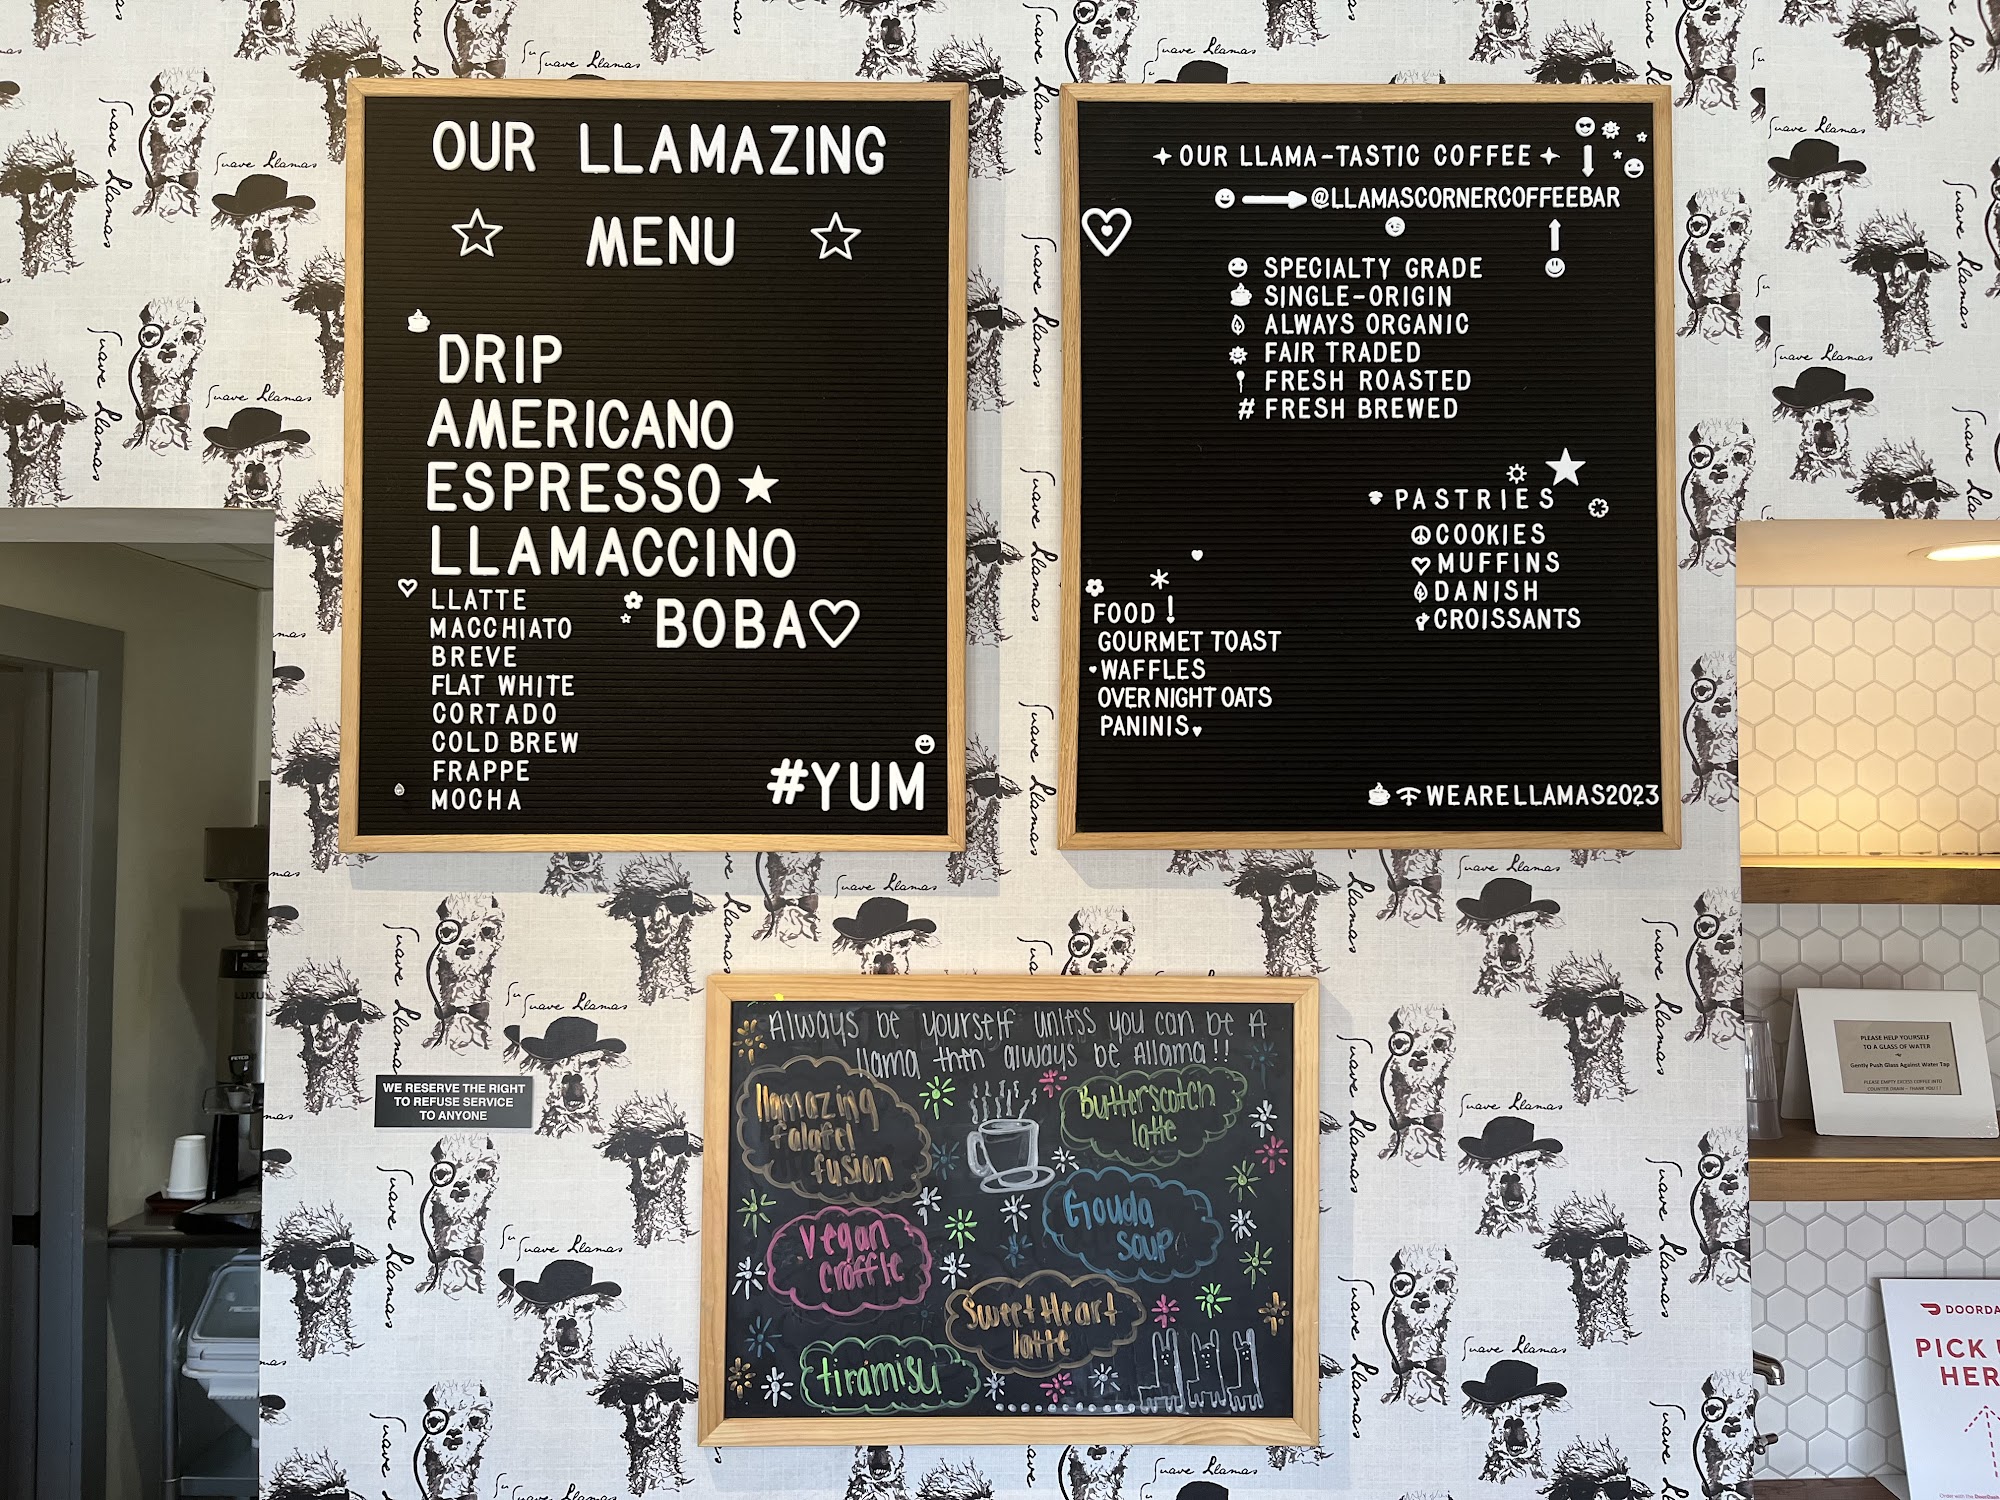 OUR LLAMAZING
MENU
DRIP
AMERICANO
ESPRESSO
LLAMACCINO
LLATTE
MACCHIATO
BREVE
FLAT WHITE
CORTADO
COLD BREW
FRAPPE
MOCHA
BOBA
#YUM
OUR LLAMA-TASTIC COFFEE
@LLAMASCORNERCOFFEEBAR
SPECIALTY GRADE
SINGLE-ORIGIN
ALWAYS ORGANIC
FAIR TRADED
FRESH ROASTED
# FRESH BREWED
PASTRIES
COOKIES
MUFFINS
DANISH
CROISSANTS
FOOD!
GOURMET TOAST
WAFFLES
OVER NIGHT OATS
PANINIS
WEARELLAMAS2023
Always be yourself unless you can be A
llama then always be Allama!!
llamazing
falafel
fusion
Butterscotch
latte
Vegan
croffle
Gouda
soup
Sweet Heart
latte
tiramisu
WE RESERVE THE RIGHT
TO REFUSE SERVICE
TO ANYONE
Suave Llamas
PLEASE HELP YOURSELF
TO A GLASS OF WATER
Gently Push Glass Against Water Tap
PLEASE EMPTY EXCESS COFFEE INTO
COUNTER DRAIN - THANK YOU!!!
DOORDA
PICK
HER
FETCO
LUXU